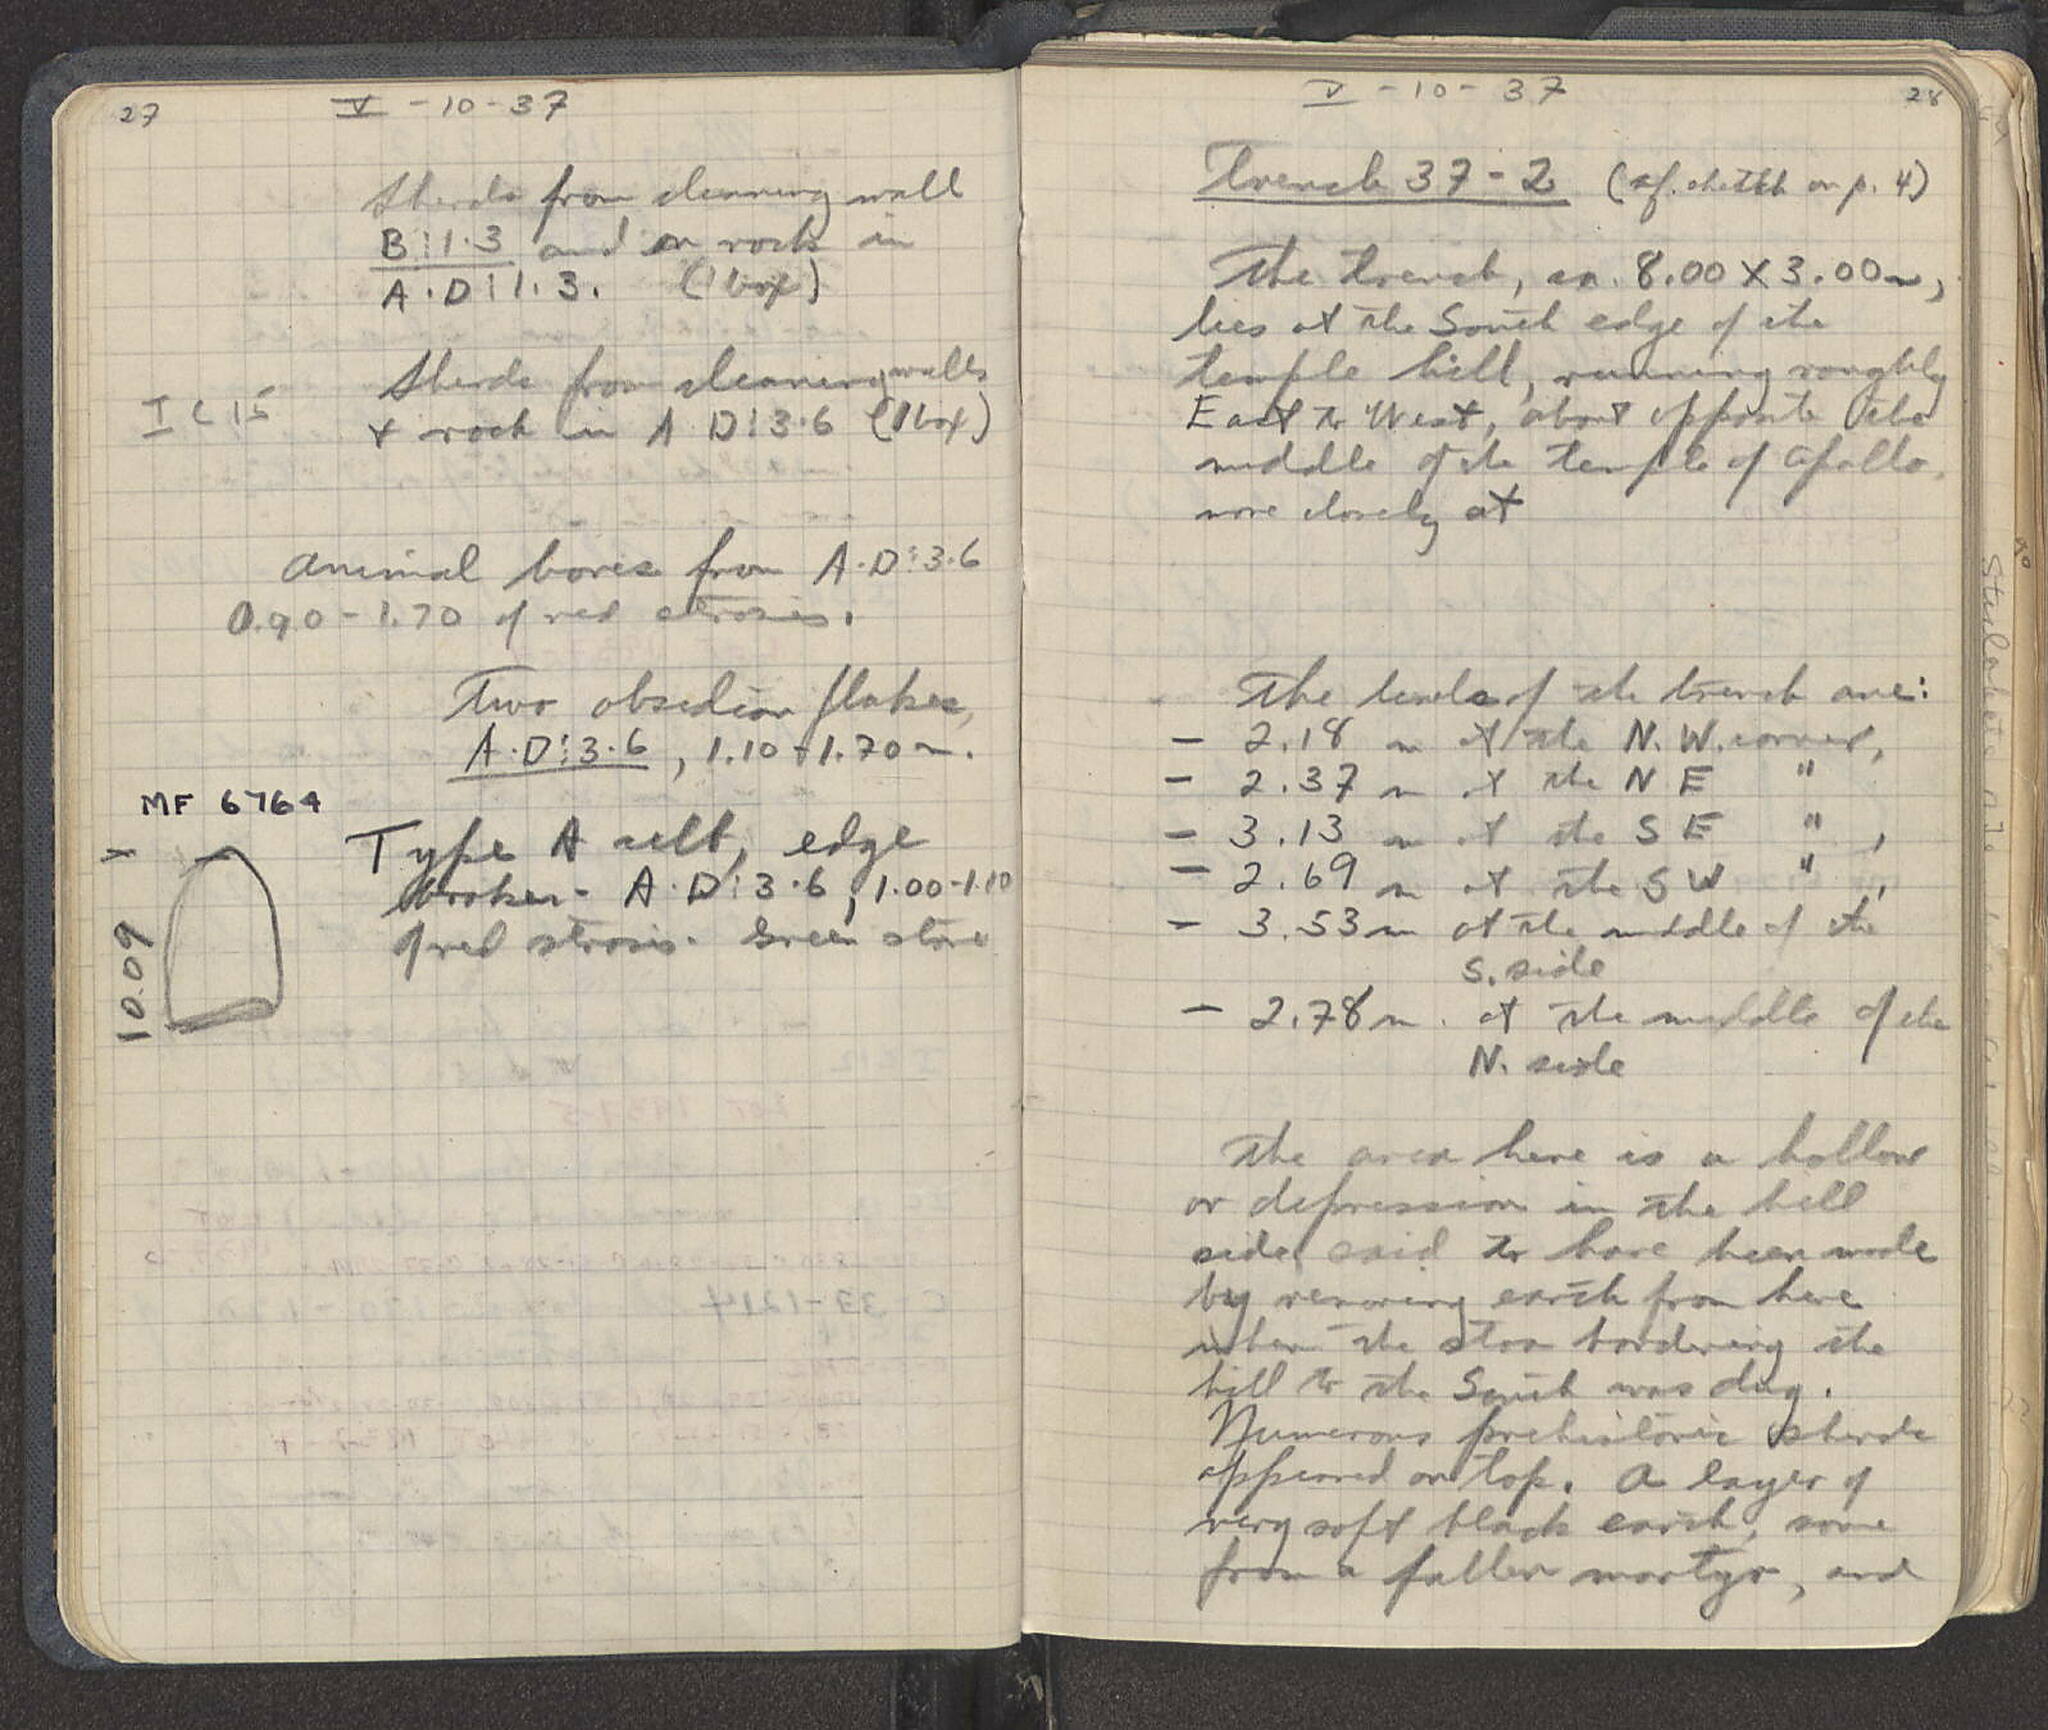 27
V - 10 - 37
Sherds from cleaning wall
B:1.3 and on rock in
A.D:1.3. (1 box)
I C 15
Sherds from cleaning walls
+ rock in A D:3.6 (1 box)
Animal bones from A.D:3.6
0.90 - 1.70 of red strosis.
Two obsidian flakes,
A.D:3.6, 1.10 - 1.70 m.
MF 6764
Type A celt, edge
broken - A.D:3.6, 1.00-1.10
of red strosis. Green stone
10.09
V - 10 - 37
28
Trench 37 - 2 (cf. sketch on p. 4)
The trench, ca. 8.00 X 3.00 m,
lies at the South edge of the
temple hill, running roughly
East to West, about opposite the
middle of the temple of Apollo,
more closely at
The levels of the trench are:
- 2.18 m at the N.W. corner,
- 2.37 m at the N E "
- 3.13 m at the S E " ,
- 2.69 m at the S W " ,
- 3.53 m at the middle of the
S. side
- 2.78 m. at the middle of the
N. side
The area here is a hollow
or depression in the hill
side said to have been made
by removing earth from here
when the stoa bordering the
hill to the South was dug.
Numerous prehistoric sherds
appeared on top. A layer of
very soft black earth, some
from a fallen martyr, and